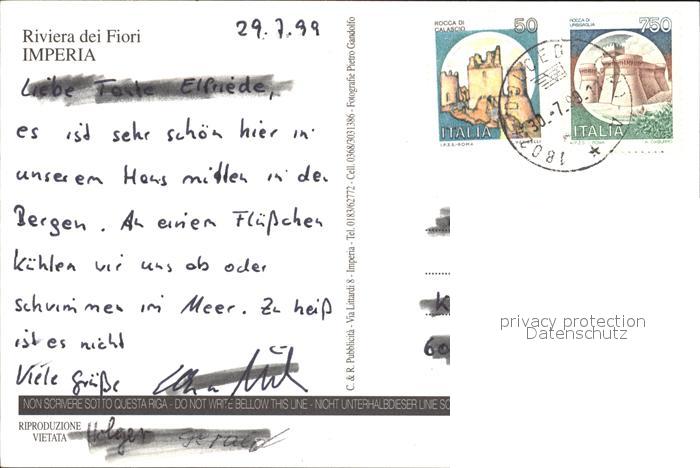 Riviera dei Fiori
IMPERIA
29.7.99
Liebe Tante Elfriede,
es ist sehr schön hier in
unserem Haus mitten in den
Bergen. An einem Flüßchen
kühlen wir uns ab oder
schwimmen im Meer. Zu heiß
ist es nicht
Viele Grüße
NON SCRIVERE SOTTO QUESTA RIGA - DO NOT WRITE BELLOW THIS LINE - NICHT UNTERHALBDIESER LINIE SC
RIPRODUZIONE
VIETATA
Holger Gerald
C. & R. Pubblicità - Via Littardi 8 - Imperia - Tel. 0183/62772 - Cell. 0368/2031386 - Fotografie Pietro Gandolfo
ROCCA DI
CALASCIO
50
ITALIA
I.P.Z.S. - ROMA
ROCCA DI
URBISAGLIA
750
ITALIA
I.P.Z.S. ROMA
30-7.99
1803
K
60
privacy protection
Datenschutz